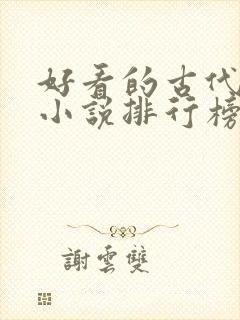 好看的古代
小説排行榜
謝雲雙